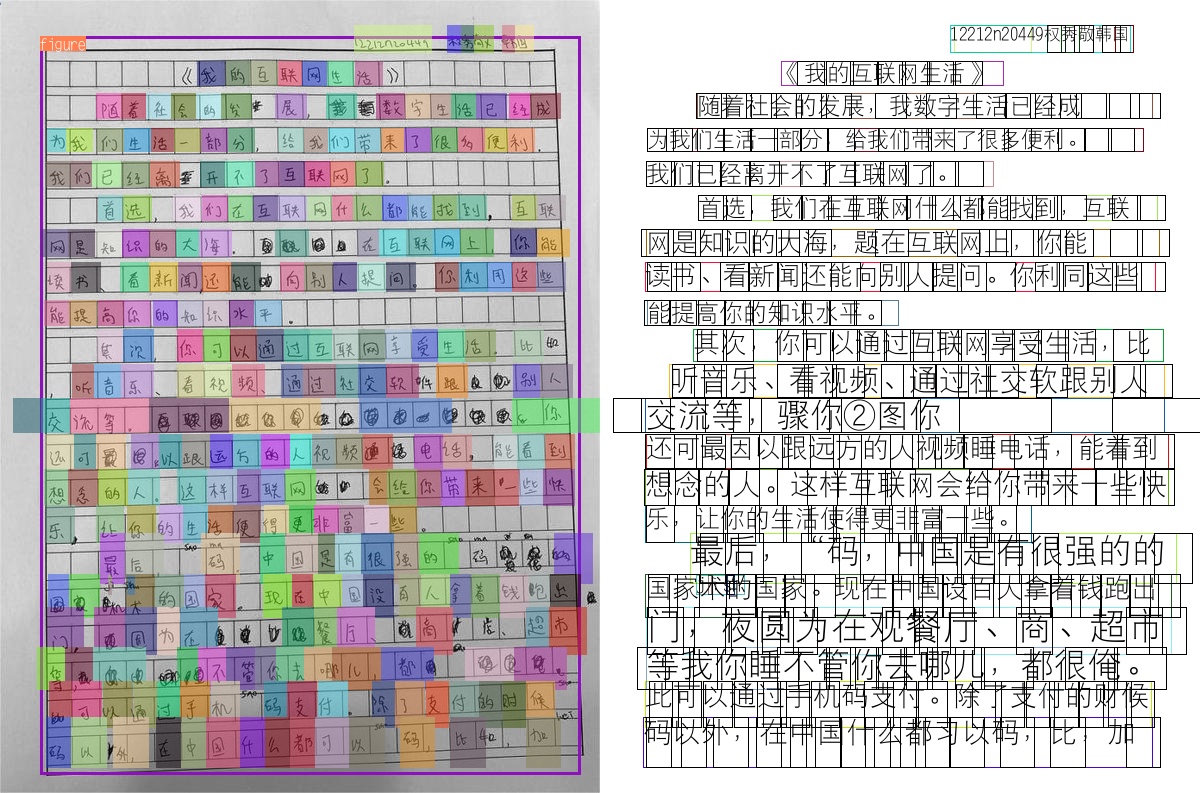 figure
12212n20449 权秀敬 韩国
《我的互联网生活》
随着社会的发展，数字生活已经成
为我们生活一部分，给我们带来了很多便利。
我们已经离开不了互联网了。
首选，我们在互联网什么都能找到，互联
网是知识的大海。在互联网上，你能
读书、看新闻，还能向别人提问。你利用这些
能提高你的知识水平。
其次，你可以通过互联网享受生活。比如
，听音乐、看视频、通过社交软件跟别人
交流等。你
还可以跟远方的人视频电话，能看到
想念的人。这样互联网会给你带来一些快
乐，让你的生活便得更非富一些。
最后，sao ma 码。中国是有很强的 sao 码的
国家。现在中国没有人拿着钱跑出
门，因为在餐厅、商店、超市
等，不管你去哪儿，都
可以通过手机 sao 码支付。除了支付的时候
码以外，在中国什么都可以 sao 码，比如，加
12212n20449权秀敬韩国
《我的互联网生活》
随着社会的发展，我数字生活已经成
为我们生活一部分，给我们带来了很多便利。
我们已经离开不了互联网了。
首选，我们在互联网什么都能找到，互联
网是知识的大海，题在互联网上，你能
读书、看新闻还能向别人提问。你利同这些
能提高你的知识水平。
其次，你可以通过互联网享受生活，比
听音乐、看视频、通过社交软跟别人
交流等，骤你②图你
还可最因以跟远方的人视频睡电话，能着到
想念的人。这样互联网会给你带来一些快
乐，让你的生活使得更非富一些。
最后，“码，中国是有很强的的
国家术的国家。现在中国设百人拿着钱跑出
门，夜圆为在观餐厅、商、超市
等我你睡不管你去哪儿，都很俺。
此可以通过手机码支付。除了支付的财候
码以外，在中国什么都习以码，比，加